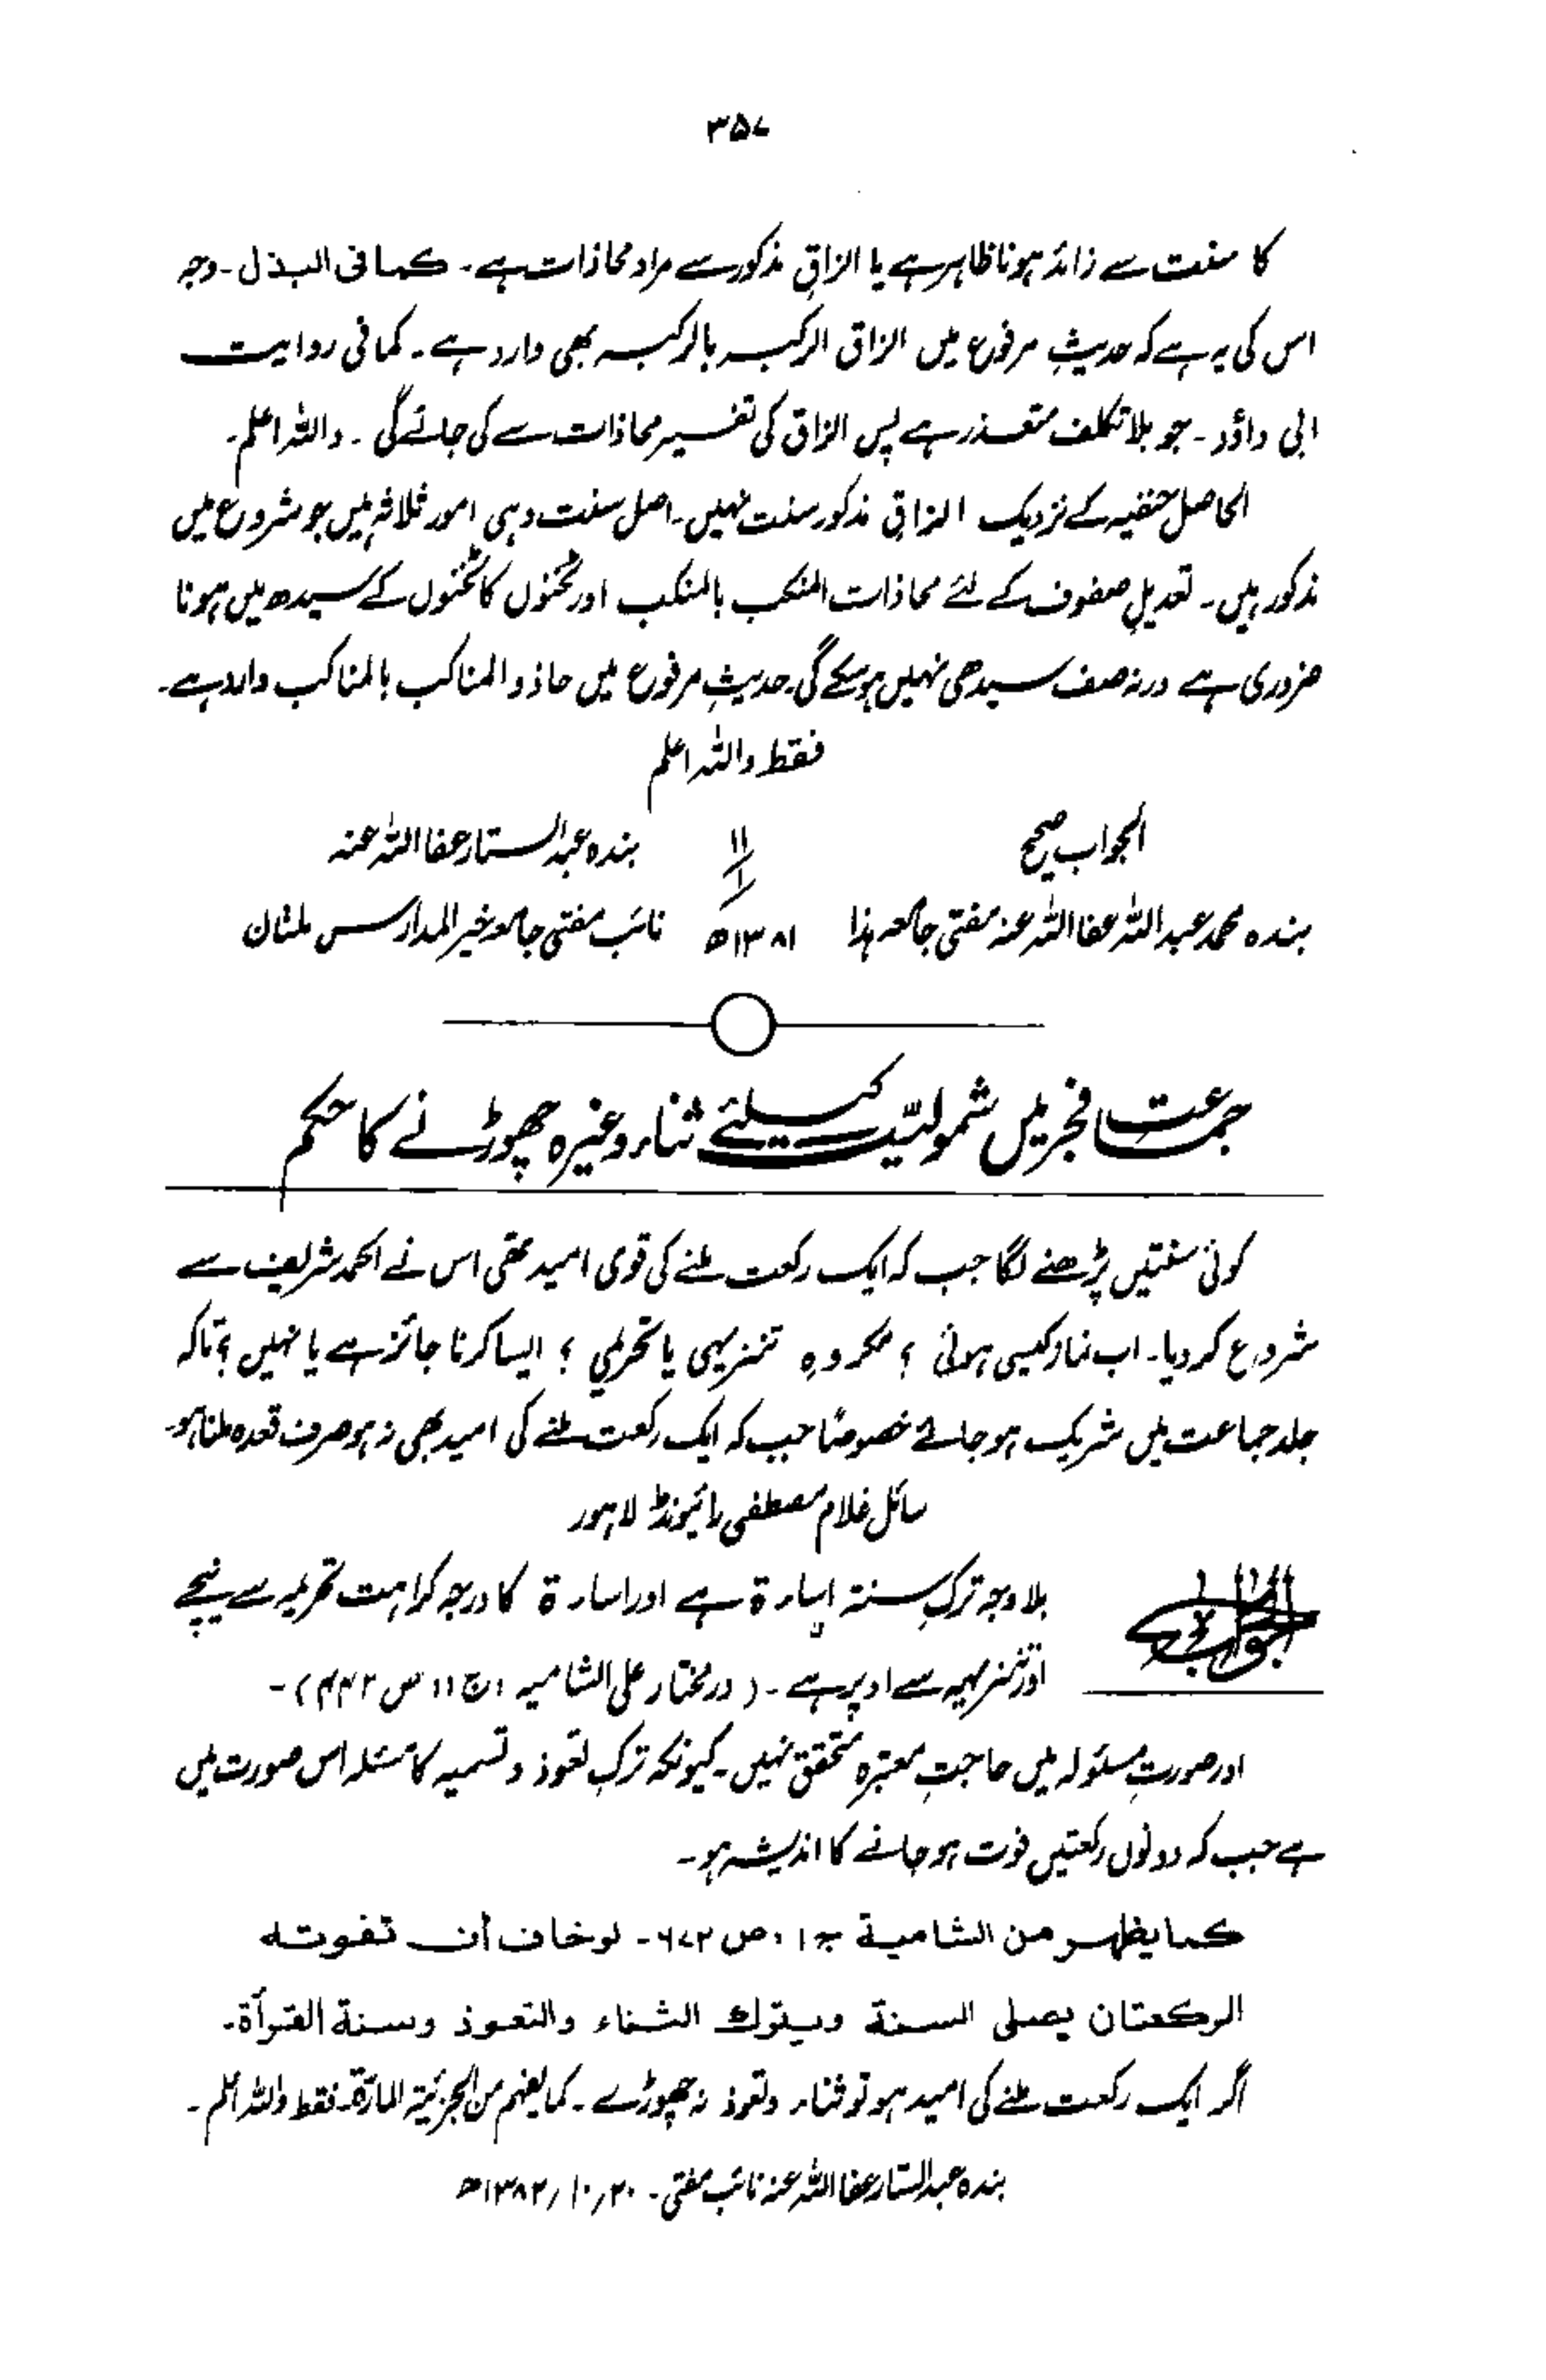 ۳۵۷
کا سنت سے زائد ہونا ظاہر ہے یا الزاقِ مذکور سے مراد محاذات ہے۔ کما فی البذل۔ وجہ
اس کی یہ ہے کہ حدیثِ مرفوع میں الزاق الرکبہ بالرکبہ بھی وارد ہے۔ کما فی روایت
ابی داؤد۔ جو بلا تکلف متعسذر ہے پس الزاق کی تفسیر محاذات سے کی جائے گی۔ واللہ اعلم۔
الحاصل حنفیہ کے نزدیک الزاقِ مذکور سنت نہیں۔ اصل سنت وہی امور ثلاثہ ہیں جو شروع میں
مذکور ہیں۔ تعدیلِ صفوف کے لئے محاذات المنکب بالمنکب اور ٹخنوں کا ٹخنوں کے سیدھ میں ہونا
ضروری ہے ورنہ صف سیدھی نہیں ہوسکے گی۔ حدیثِ مرفوع میں حاذوا المناکب بالمناکب وارد ہے۔
فقط واللہ اعلم
الجواب صحیح ۱۱ بندہ عبدالستار عفا اللہ عنہ
بندہ محمد عبداللہ عفا اللہ عنہ مفتی جامعہ ہذا ۱۳۸۱ھ نائب مفتی جامعہ خیر المدارس ملتان
جماعت فجر میں شمولیّت کیلئے ثناء وغیرہ چھوڑنے کا حکم
کوئی سنتیں پڑھنے لگا جب کہ ایک رکعت ملنے کی قوی امید تھی اس نے الحمد شریف سے
شروع کر دیا۔ اب نماز کیسی ہوئی ؟ مکروہِ تنزیہی یا تحریمی ؟ ایسا کرنا جائز ہے یا نہیں ؟ تاکہ
جلد جماعت میں شریک ہو جائے خصوصًا جب کہ ایک رکعت ملنے کی امید بھی نہ ہو صرف قعدہ ملنا ہو۔
سائل غلام مصطفی رائیونڈ لاہور
الجواب بلاوجہ ترکِ سنۃ اساءۃ ہے اور اساءۃ کا درجہ کراہت تحریمیہ سے نیچے
اور تنزیہیہ سے اوپر ہے۔ (در مختار علی الشامیہ، ج ۱، ص ۴۴۲)۔
اور صورتِ مسئولہ میں حاجتِ معتبرہ متحقق نہیں۔ کیونکہ ترکِ تعوذ و تسمیہ کا مسئلہ اس صورت میں
ہے جب کہ دونوں رکعتیں فوت ہو جانے کا اندیشہ ہو۔
کما یظہر من الشامیۃ ج ۱، ص ۶۷۲۔ لو خاف أن تفوتہ
الرکعتان یصلی السنۃ ویترک الثناء والتعوذ وسنۃ القرأۃ۔
اگر ایک رکعت ملنے کی امید ہو تو ثناء وتعوذ نہ چھوڑے۔ کما یفہم من الجزئیۃ المارۃ۔ فقط واللہ اعلم۔
بندہ عبدالستار عفا اللہ عنہ نائب مفتی۔ ۲۰؍۱۰؍۱۳۸۲ھ